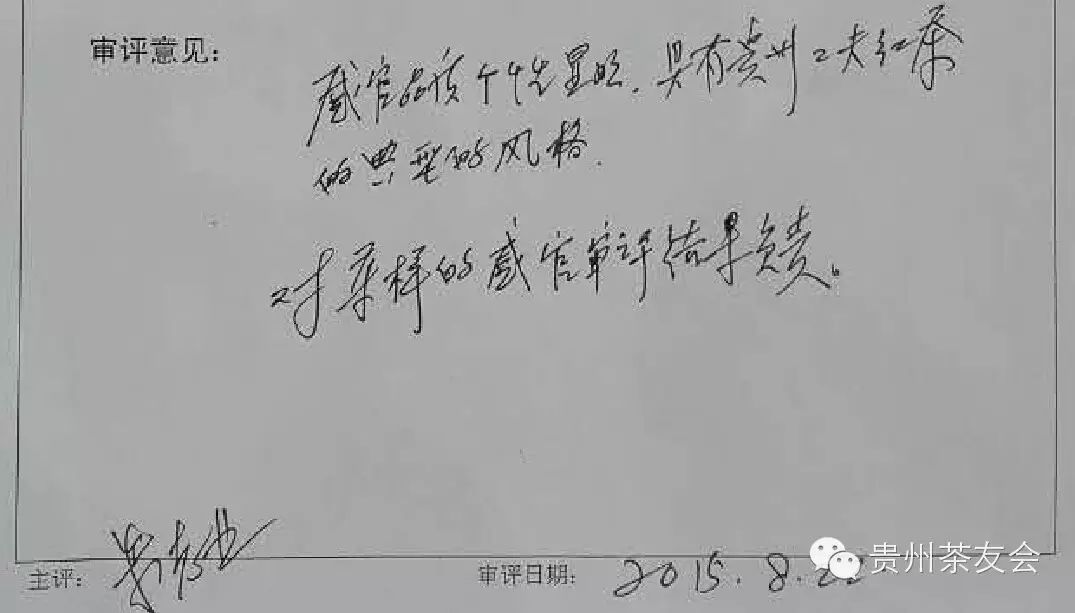 审评意见:
感官品质个性显明.具有贵州工夫红茶
的典型的风格.
对茶样的感官审评结果负责。
主评:
审评日期: 2015.8.22
贵州茶友会